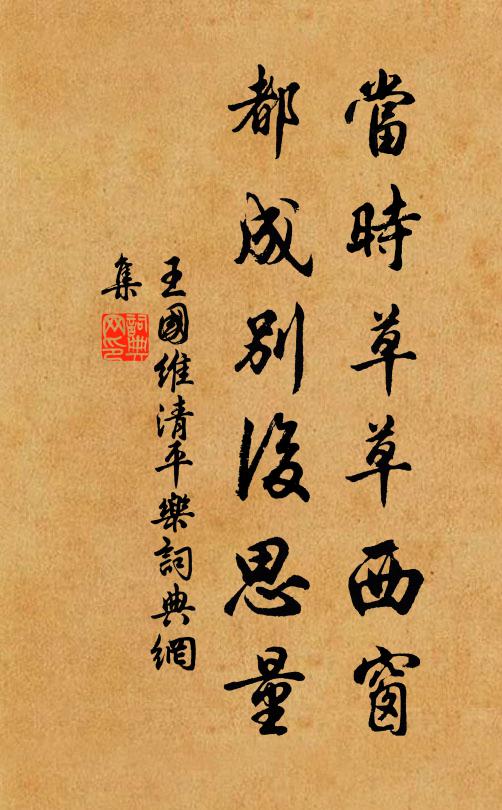 當時草草西窗
都成別後思量
王國維清平樂詞典網
集
詞典
网印